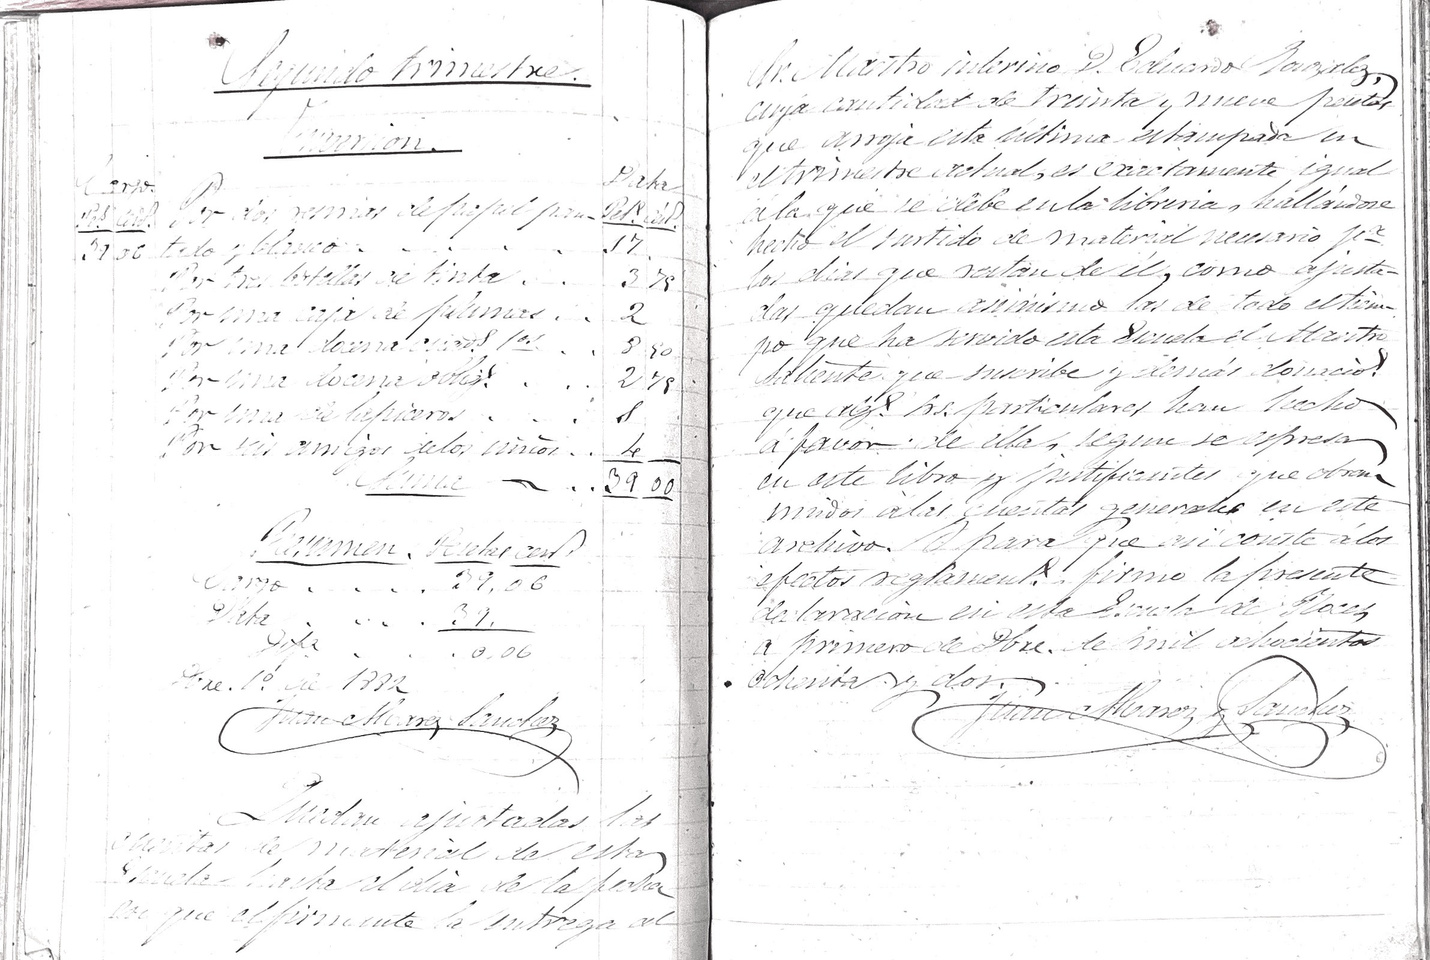 Segundo trimestre.
Inversion.
Cargo. Data
Pts. cents. Por dos resmas de papel pau- Pets. cént.
39 06 tado y blanco . . . . . 17
Por tres botellas de tinta . . . 3 75
Por una caja de plumas . . 2
Por una docena . . 5 50
Por una docena . . . 2 75
Por una de lapiceros . . . .
Por seis amigos de los niños . . 4
Suma . . 39 00
Resumen. Pesetas cents
Cargo . . . . 39,06
Data . . . . 39,
. . . 0,06
Dbre. 1º de 1882
Juan Alvarez Sanchez
Quedan ajustadas las
cuentas de material de esta
Escuela hasta el dia de la fecha
en que el firmante la entrega al
Sr. Maestro interino D. Eduardo Gonzalez,
cuya cantidad de treinta y nueve pesetas
que arroja esta última estampada en
el trimestre actual, es exactamente igual
á la que se debe en la libreria, hallándose
hecho el surtido de material necesario pa
los dias que restan de él, como ajusta-
das quedan asimismo las de todo el tiem-
po que ha servido esta Escuela el Maestro
saliente que suscribe y demás donacios
que algs Sres particulares han hecho
á favor de ella, segun se espresa
en este libro y justificantes que obran
unidos á las cuentas generales en este
archivo. Y para que asi conste á los
efectos reglaments firmo la presente
declaracion en esta Escuela de
a primero de Dbre. de mil ochocientos
ochenta y dos.
Juan Alvarez y Sanchez